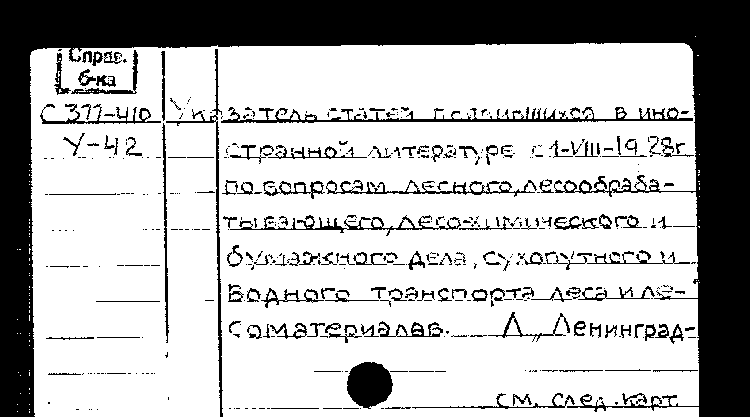 Справ.
б-ка
С 377-410 Указатель статей появившихся в ино-
У-42 странной литературе с 1-VIII-1928г
по вопросам лесного, лесообраба-
тывающего, лесо-химического и
бумажного дела, сухопутного и
водного транспорта леса и ле-
соматериалав. Л., Ленинград-
см. след. карт.